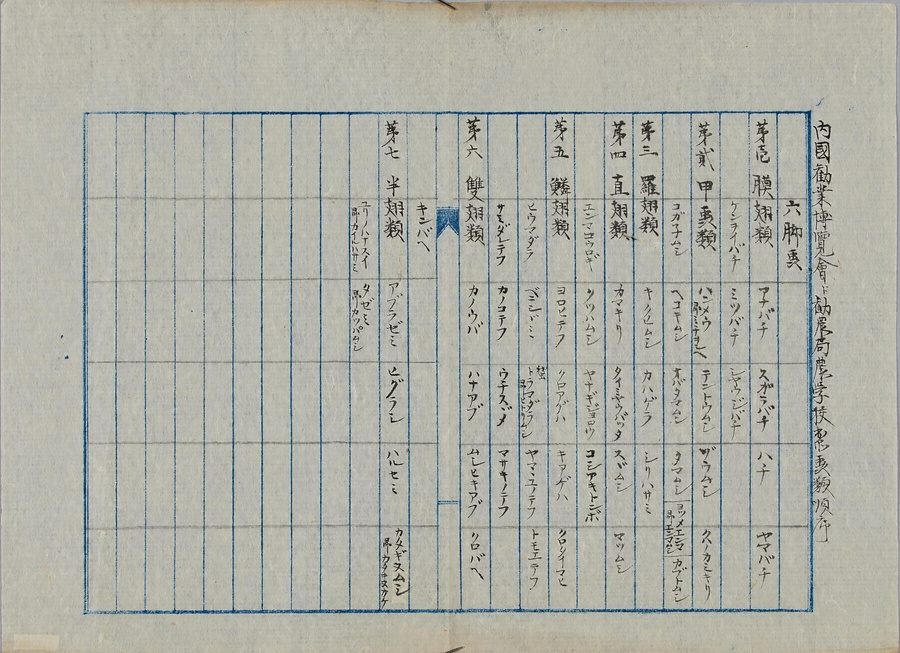 内國勧業博覧會ニ勧農局農学校 蟲類順序
六脚虫
第壱 膜翅類 アナバチ スガラバチ ハチ ヤマバチ
ケンライバチ ミツバチ シヤウジバチ
第貳 甲虫類 ハンメウ テントウムシ ザウムシ クハカミキリ
コガネムシ ヘコキムシ オバタマムシ タマムシ ヨツメエンマ カブトムシ
第三 羅翅類 キクヒムシ カハゲラ シリハサミ
第四 直翅類 カマキリ タイミヤウバッタ スヾムシ マツムシ
エンマコウロギ クツハムシ ヤナギジヨロウ コシアキトンボ
第五 鱗翅類 ヨロヒテフ クロアゲハ キアゲハ クロシイマヒ
ヒウマダラ ベニシヾミ トラマダラ ヤマユノテフ トモエテフ
サミダレテフ カノコテフ ウチスヾメ マサキノテフ
第六 雙翅類 カノウバ ハナアブ ムシヒキアブ クロバヘ
キンバヘ
第七 半翅類 アブラゼミ ヒグラシ ハルセミ カメギスムシ
ユリノハナスイ タゼミ